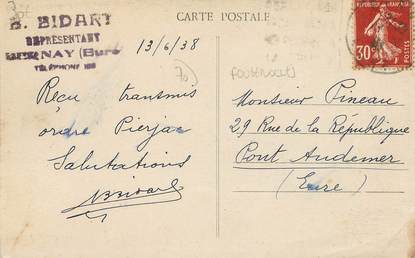 CARTE POSTALE
B. BIDART
REPRÉSENTANT
NAY (Eure)
TÉLÉPHONE
13/6/38
70
Reçu transmis
ordre Pierjac
Salutations
BBidart
REPUBLIQUE FRANÇAISE
30
POSTES
Monsieur Pineau
29 Rue de la République
Pont Audemer
(Eure)